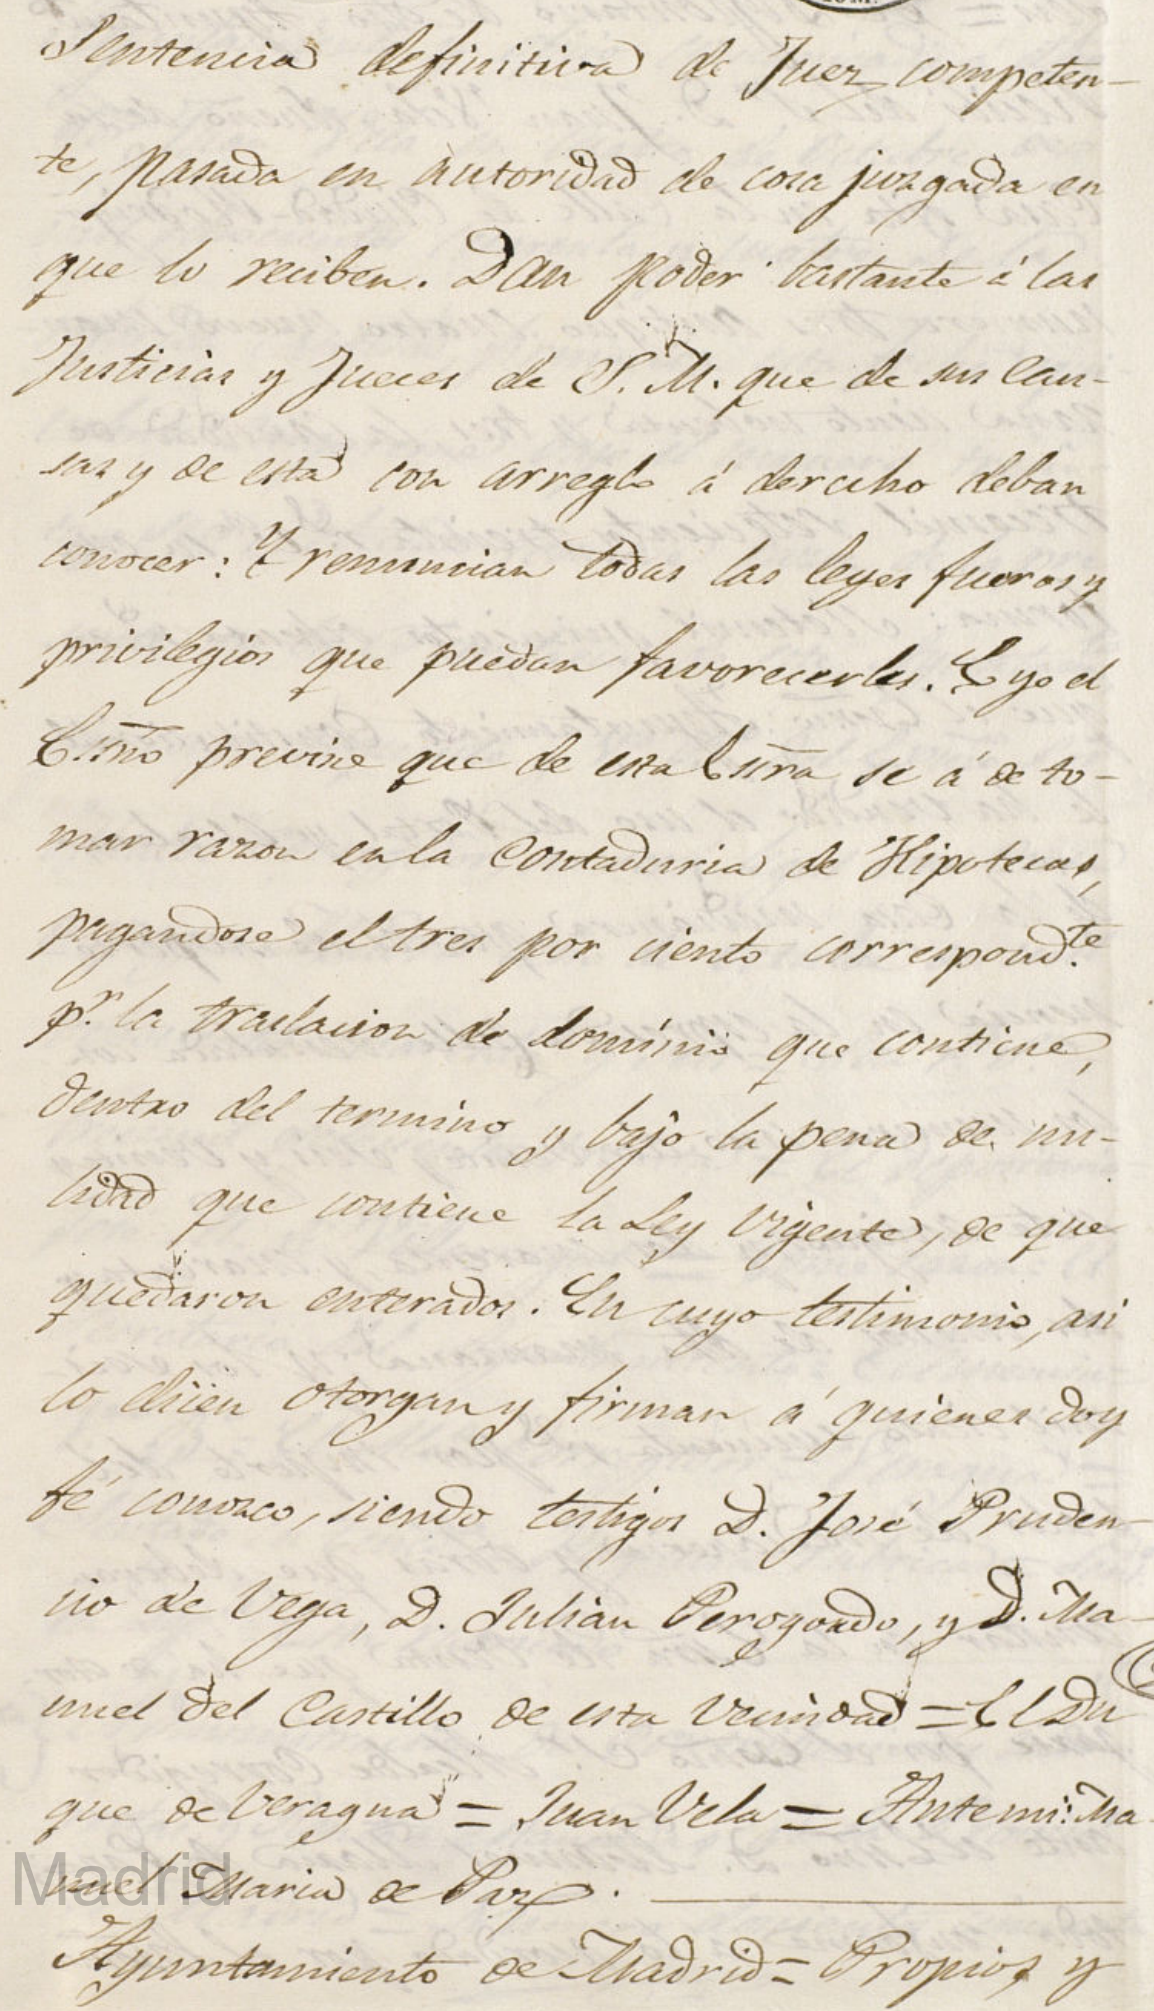 Sentencia definitiva de Juez competen-
te, pasada en autoridad de cosa juzgada en
que lo reciben. Dan poder bastante á las
Justicias y Jueces de S. M. que de sus cau-
sas y de esta con arreglo á derecho deban
conocer: Y renuncian todas las leyes fueros y
privilegios que puedan favorecerles. E yo el
Essno previne que de esta Essra se á de to-
mar razon en la Contaduria de Hipotecas,
pagandose el tres por ciento correspond.te
p.r la traslacion de dominio que contiene,
dentro del termino y bajo la pena de nu-
lidad que contiene la Ley vigente, de que
quedaron enterados. En cuyo testimonio, asi
lo dicen otorgan y firman á quienes doy
fé conozco, siendo testigos D. José Pruden-
cio de Vega, D. Julian Perogordo, y D. Ma-
nuel del Castillo de esta vecindad = El Du
que de Veragua = Juan Vela = Ante mi: Ma
nuel Maria de Paz.
Ayuntamiento de Madrid = Propios y
Madrid